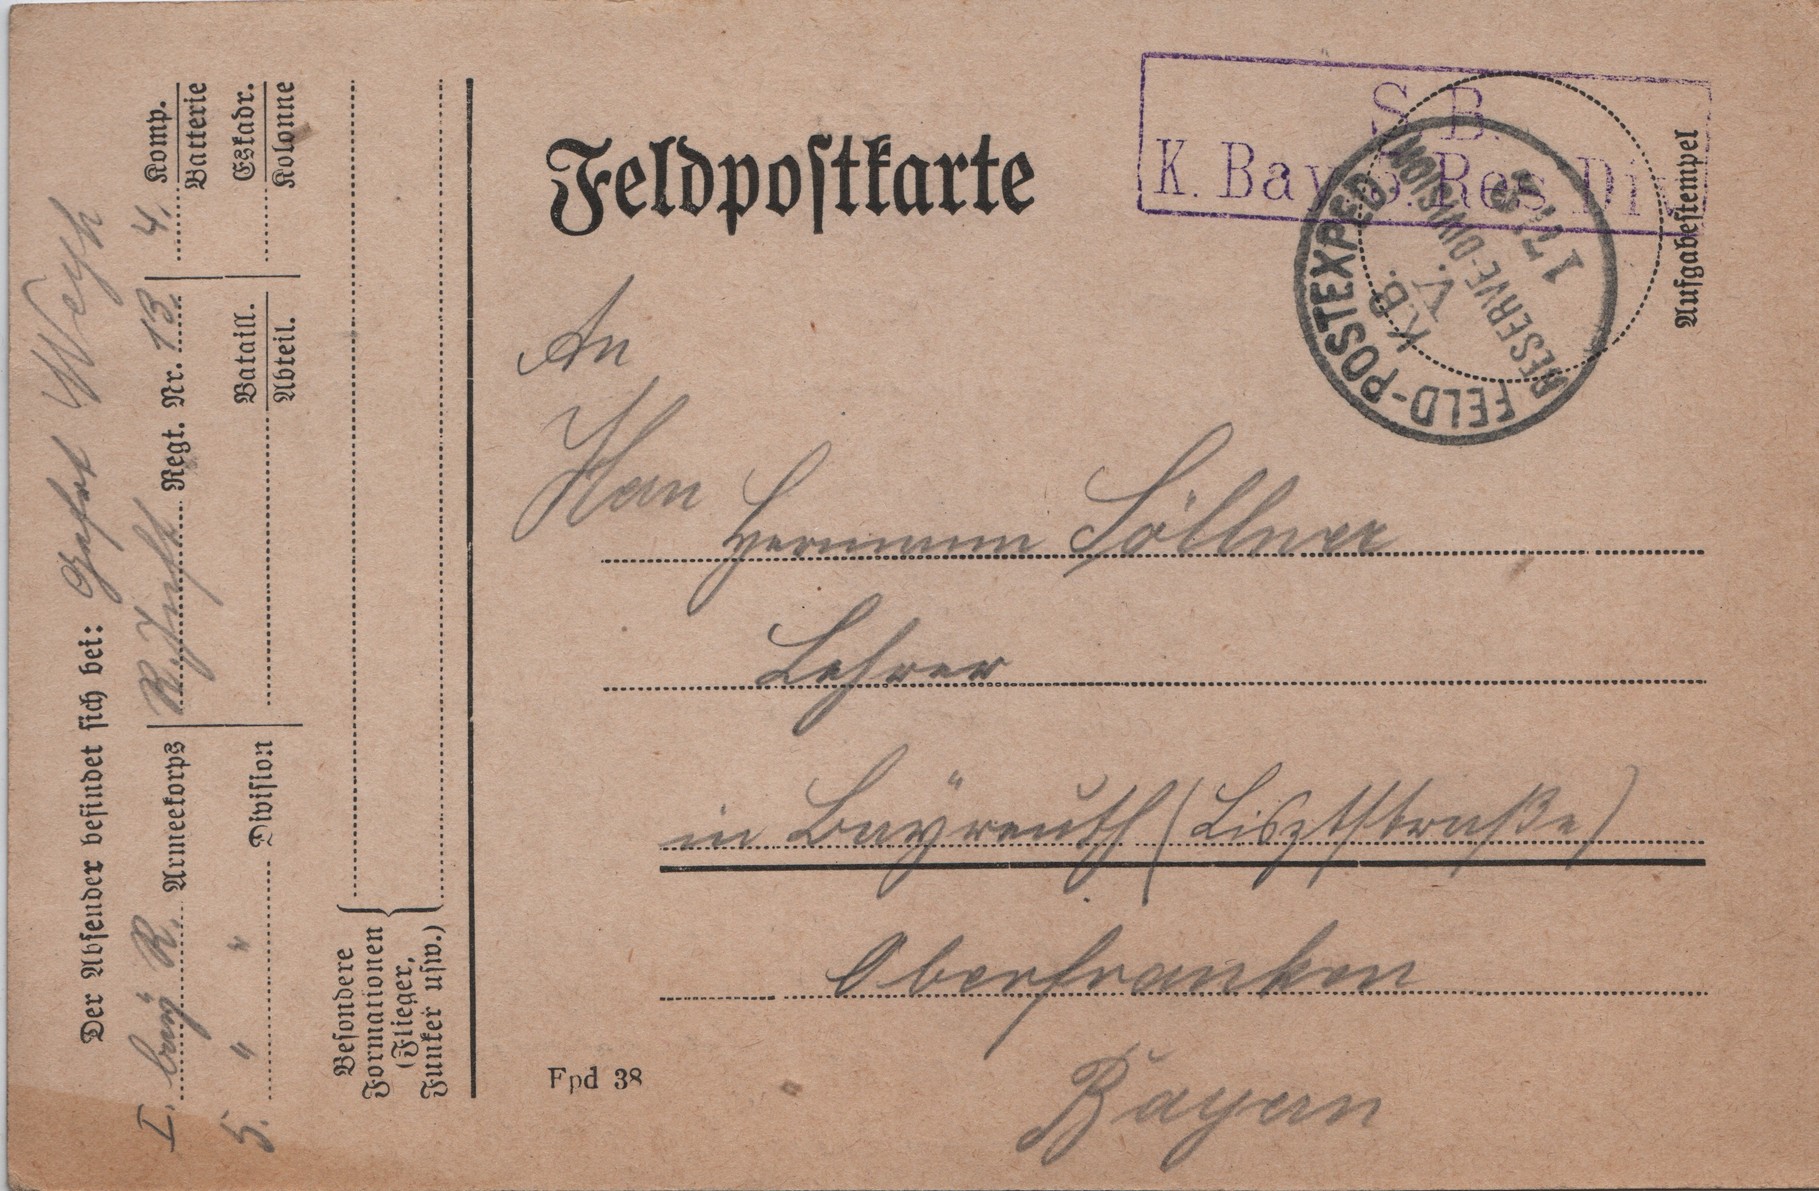 Feldpostkarte
S. B.
K. Bay. 5. Res. Div.
FELD-POSTEXPED.
K.B.
V.
RESERVE-DIVISION
17
Aufgabestempel
An
Herrn Hermann Söllner
Lehrer
in Baÿreuth (Lisztstraße)
Oberfranken
Bayern
Fpd 38
Der Absender befindet sich bei: Gefrt Weyh
I. baÿ R. Armeekorps R. Inft. Regt. Nr. 13. 4. Komp.
Batterie
5. " " Division Bataill. Eskadr.
Abteil. Kolonne
Besondere
Formationen
(Flieger,
Funker usw.)